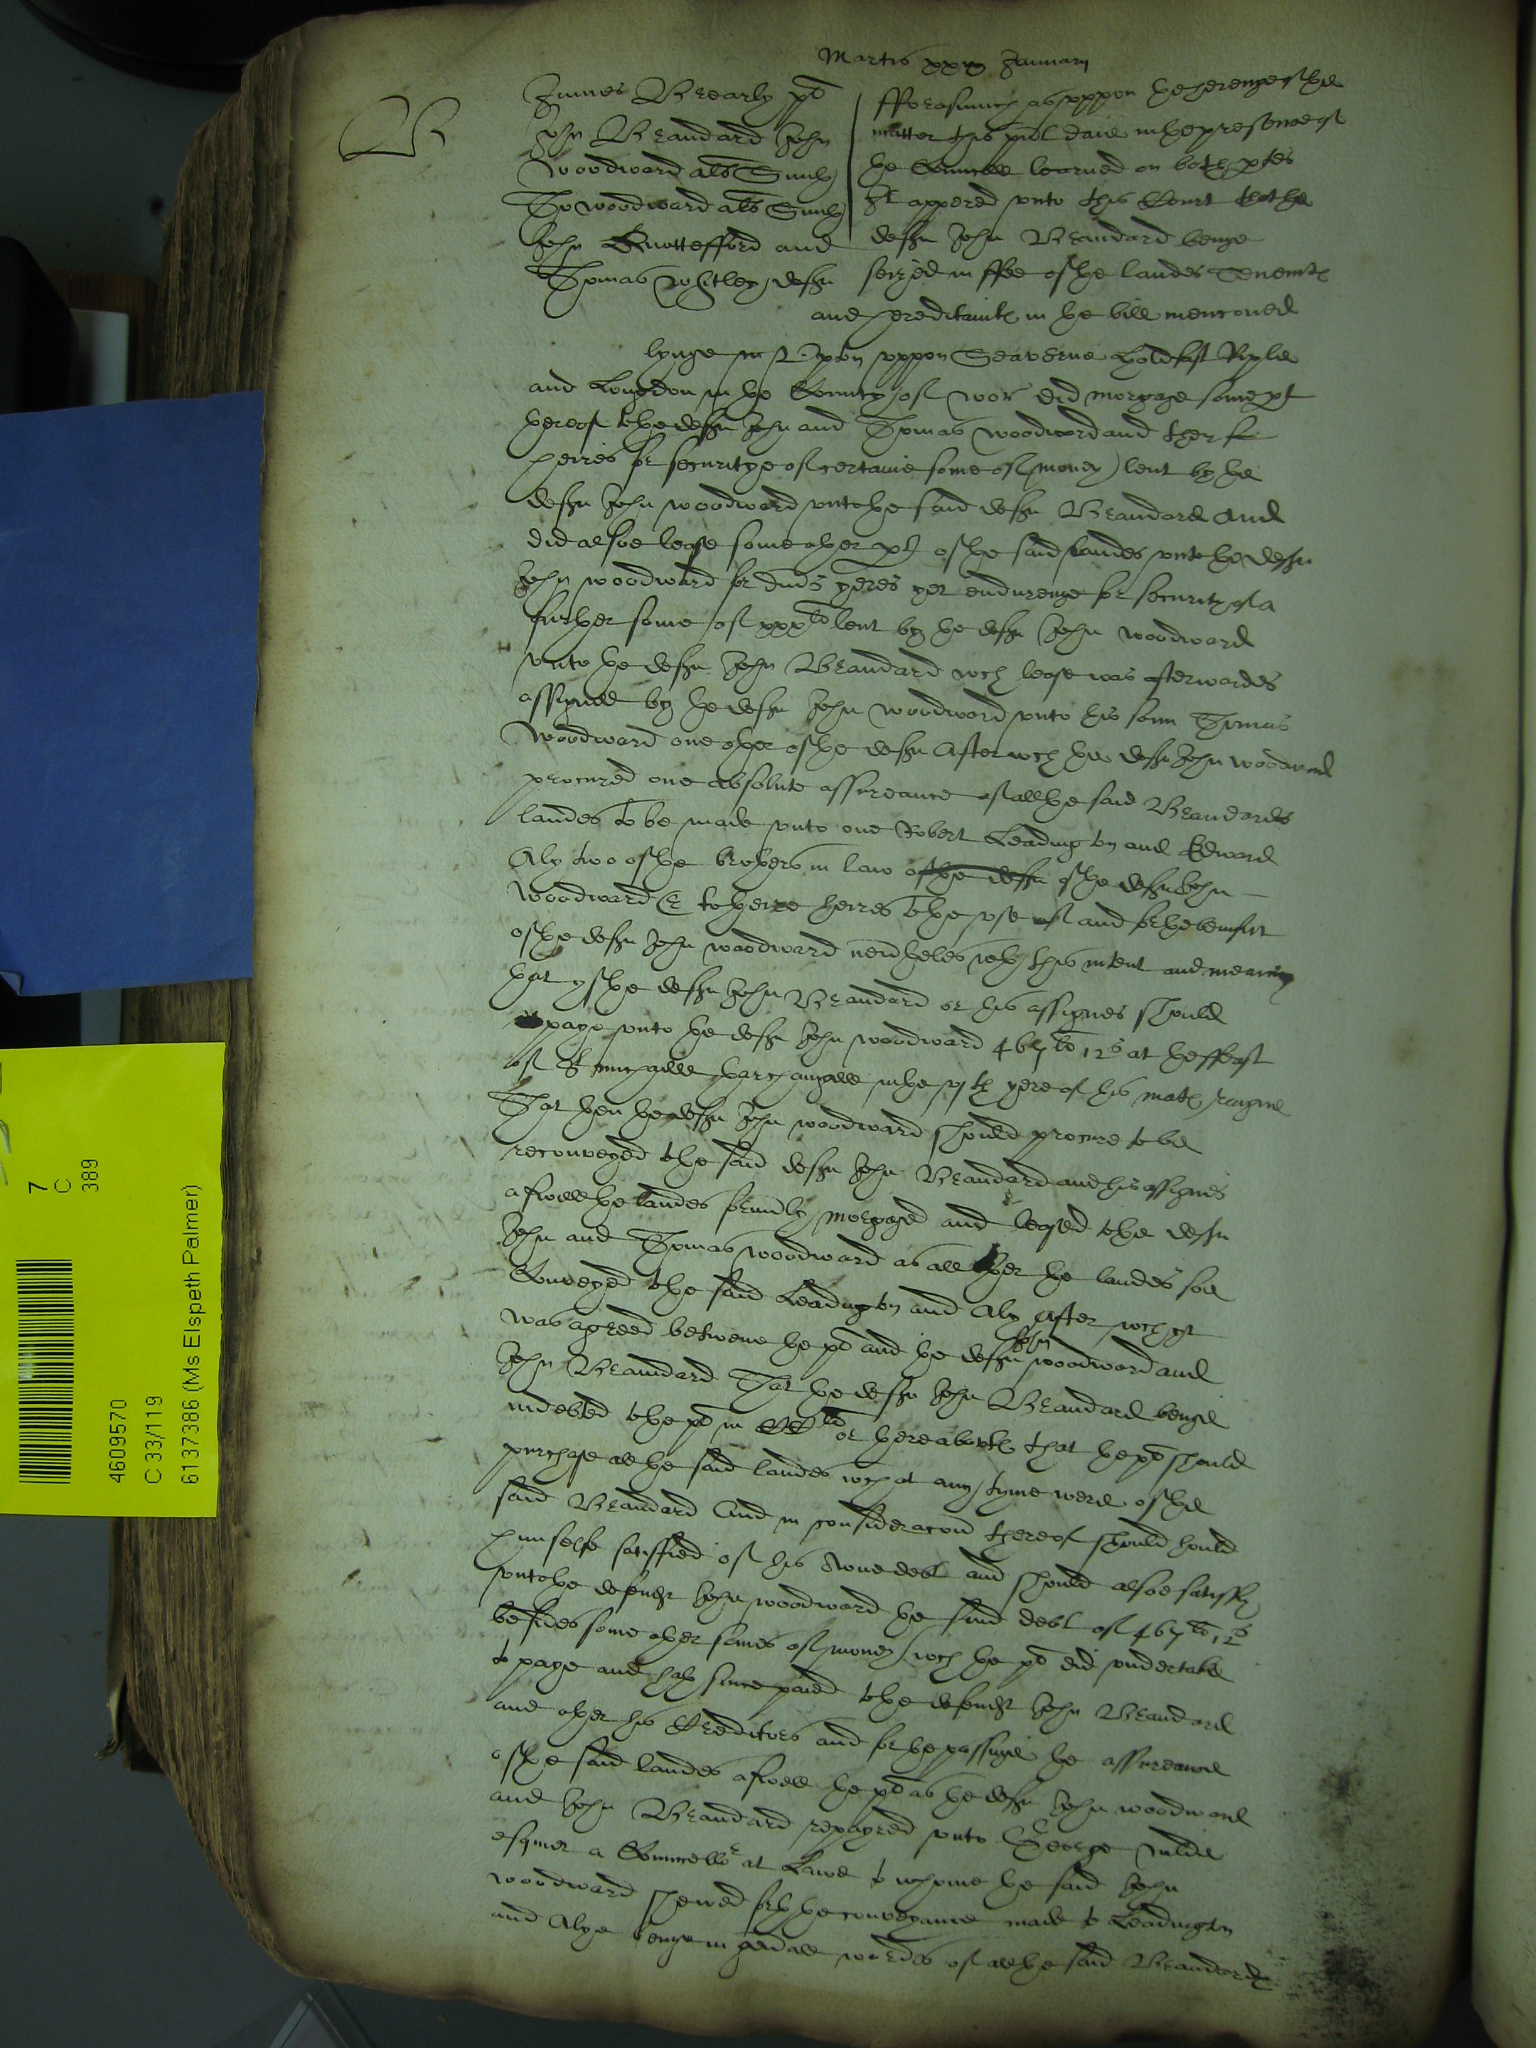 Martis xxx Januarii
B
James Brearly pl
John Breandard John
Woodward als Smyth
Tho woodward als Smyth
John Knottesford and
Thomas Whitley deftes
fforasmuch as uppon the hereinge of the
matter this pnt daie in the presence of
the Councell learned on both ptes
It appered unto this Court that the
deft John Breandard beinge
seized in ffee of the landes Tenemtes
and hereditamtes in the bill menconed
lyinge in Upton uppon Seaverne Holdfast Riple
and Longdon in the County of wor did morgage some pt
thereof to the deft John and Thomas woodward and their
heires for securitye of certaine some of money lent by the
deft John woodward unto the said deft Breandard and
did alsoe lease some other pt of the said landes unto the deft
John woodward for divers yeres yet enduringe for security of a
further some of xxx li lent by the deft John woodward
unto the deft John Breandard wch lease was afterwardes
assigned by the deft John woodward unto his sonn Thomas
Woodward one other of the deftes After wch the deft John woodward
procured one absolute assureance of all the said Breandardes
landes to be made unto one Robert Leadington and Edward
Aly two of the brothers in law of the deft of the deft John
Woodward & to theire heires to the use of and for the benefitt
of the deft John woodward nevertheles wth this intent and meaning
that yf the deft John Breandard or his assignes should
paye unto the deft John woodward 467 li 12 s at the ffeast
of St michaell tharchangell in the yere of his mats raigne
That then the deft John woodward should procure to be
reconveyed to the said deft John Breandard and his assignes
aswell the landes formerly morgaged and leased to the deft
John and Thomas woodward as all other the landes soe
Conveyed to the said Leadington and Aly After wch yt
was agreed betweene the pl and the deft John woodward and
John Breandard That the deft John Breandard beinge
indebted to the pl in li or thereaboutes that the pl should
purchase all the said landes wch at any tyme were of the
said Breandard And in consideracon thereof should hould
himselfe satisfied of his owne debt and should alsoe satisfy
unto the defendt John woodward the said debt of 467 li 12 s
besides some other somes of money wch the pl did undertake
to paye and hath since paied to the defendt John Breandard
and other his Creditors and for the passinge the assureance
of the said landes aswell the pl as the deft John woodward
and John Breandard repayred unto George wilde
esquier a Councellor at Lawe to whome the said John
woodward shewed forth the conveyance made to Leadington
and Alye beinge in gen'all wordes of all the said Breandardes
7
C
389
4609570
C 33/119
6137386 (Ms Elspeth Palmer)